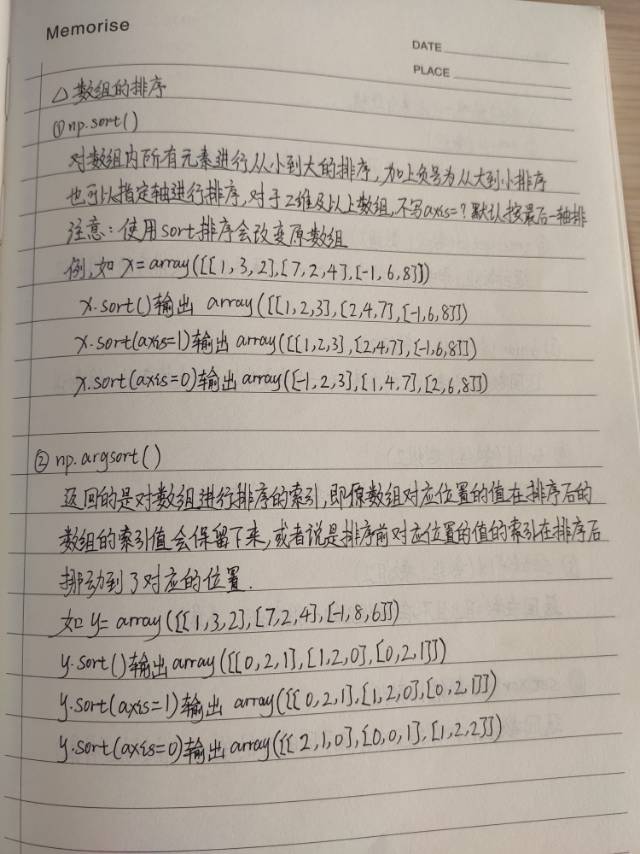 Memorise
DATE
PLACE
△数组的排序
①np.sort()
对数组内所有元素进行从小到大的排序,加上负号为从大到小排序
也可以指定轴进行排序,对于2维及以上数组,不写axis=?默认按最后一轴排
注意:使用sort排序会改变原数组
例,如 x=array([[1,3,2],[7,2,4],[-1,6,8]])
x.sort()输出 array([[1,2,3],[2,4,7],[-1,6,8]])
x.sort(axis=1)输出 array([[1,2,3],[2,4,7],[-1,6,8]])
x.sort(axis=0)输出array([-1,2,3],[1,4,7],[2,6,8]])
② np.argsort()
返回的是对数组进行排序的索引,即原数组对应位置的值在排序后的
数组的索引值会保留下来,或者说是排序前对应位置的值的索引在排序后
挪动到了对应的位置.
如 y=array([[1,3,2],[7,2,4],[-1,8,6]])
y.sort()输出array([[0,2,1],[1,2,0],[0,2,1]])
y.sort(axis=1)输出 array([[0,2,1],[1,2,0],[0,2,1]])
y.sort(axis=0)输出array([[2,1,0],[0,0,1],[1,2,2]])